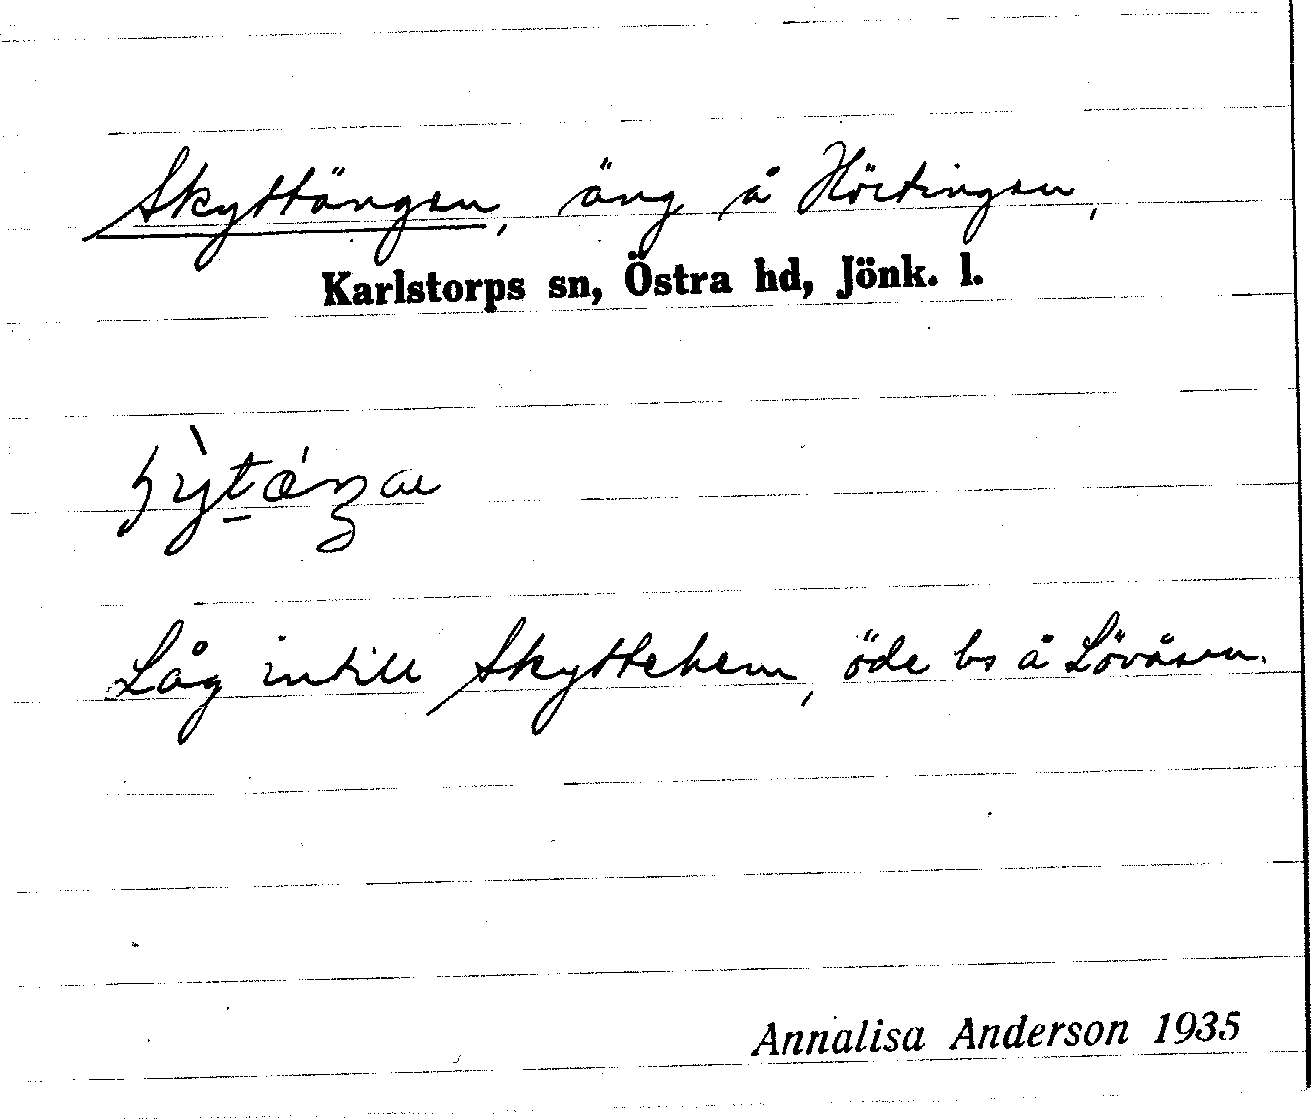 Skyttängen, äng å Hörtingen,
Karlstorps sn, Östra hd, Jönk. l.
Låg intill Skyttehem, öde bs å Lövåsen.
Annalisa Anderson 1935